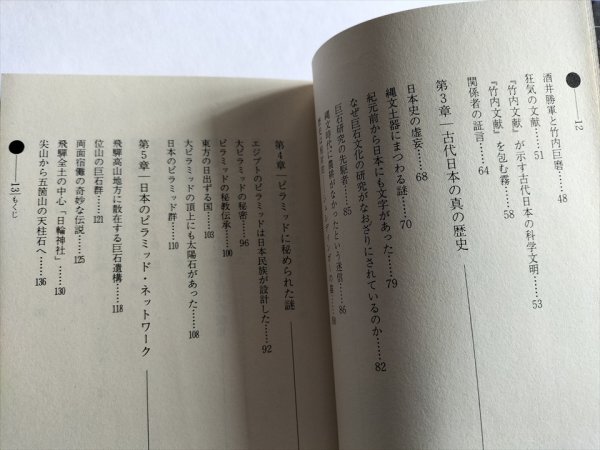 12
酒井勝軍と竹内巨麿……48
狂気の文献……51
『竹内文献』が示す古代日本の科学文明……53
『竹内文献』を包む霧……58
関係者の証言……64
第3章―古代日本の真の歴史
日本史の虚妄……68
縄文土器にまつわる謎……70
紀元前から日本にも文字があった……79
なぜ巨石文化の研究がなおざりにされているのか……82
巨石研究の先駆者……85
縄文時代に農耕がなかったという迷信……86
第4章―ピラミッドに秘められた謎
エジプトのピラミッドは日本民族が設計した……92
大ピラミッドの秘密……96
ピラミッドの秘教伝承……100
東方の日出ずる国……103
大ピラミッドの頂上にも太陽石があった……108
日本のピラミッド群……110
第5章―日本のピラミッド・ネットワーク
飛騨高山地方に散在する巨石遺構……118
位山の巨石群……121
両面宿儺の奇妙な伝説……125
飛騨全土の中心「日輪神社」……130
尖山から五箇山の天柱石へ……136
13 もくじ